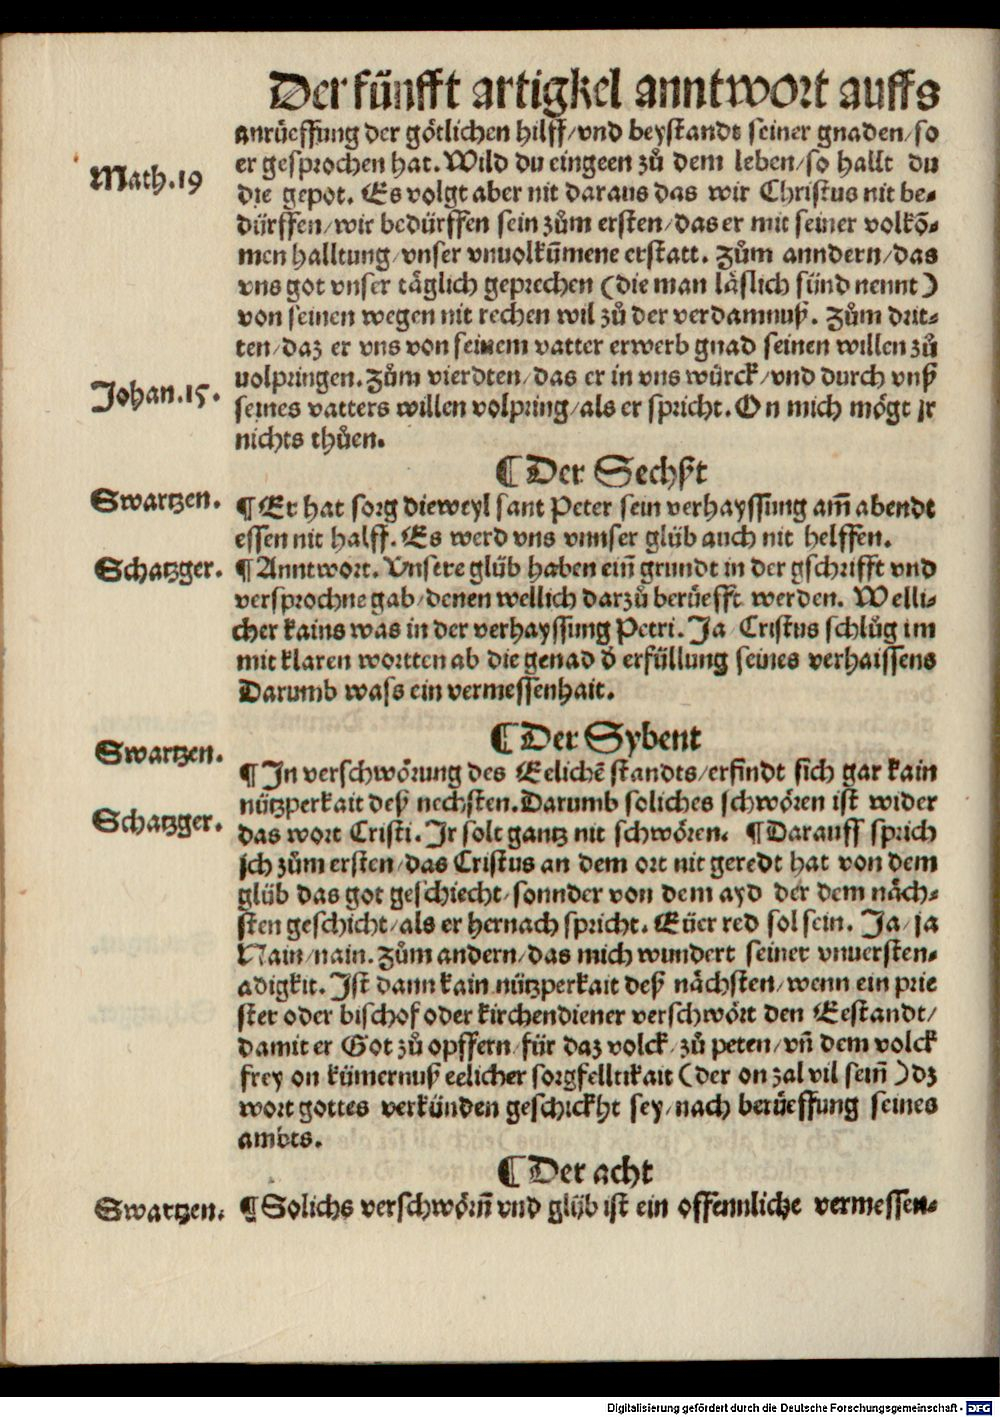 Der fünfft artigkel anntwort auffs
anrüeffung der götlichen hilff/vnd beystandt seiner gnaden/so
er gesprochen hat. Wild du eingeen zů dem leben/so hallt du
Math.19
die gepot. Es volgt aber nit daraus das wir Christus nit be⸗
dürffen/wir bedürffen sein zům ersten/das er mit seiner volkõ⸗
men halltung/vnser vnuolkũmene erstatt. Zům anndern/das
vns got vnser täglich geprechen (die man läslich sünd nennt)
von seinen wegen nit rechen wil zů der verdamnuß. Zům drit⸗
ten/daz er vns von seinem vatter erwerb gnad seinen willen zů
uolpringen. Zům vierdten/das er in vns würck/vnd durch vnß
Johan.15.
seines vatters willen volpring/als er spricht. On mich mögt jr
nichts thůen.
¶ Der Sechst
Swartzen.
¶ Er hat sorg dieweyl sant Peter sein verhayssung am̃ abendt
essen nit halff. Es werd vns vnnser glüb auch nit helffen.
Schatzger.
¶ Anntwort. Vnsere glüb haben ein̄ grundt in der gschrifft vnd
versprochne gab/denen wellich darzů berüefft werden. Welli⸗
cher kains was in der verhayssung Petri. Ja Cristus schlůg im
mit klaren wortten ab die genad d̕ erfüllung seines verhaissens
Darumb wass ein vermessenhait.
¶ Der Sybent
Swartzen.
¶ In verschwörung des Eelichẽ standts/erfindt sich gar kain
nützperkait deß nechsten. Darumb soliches schwören ist wider
Schatzger.
das wort Cristi. Ir solt gantz nit schwören. ¶ Darauff sprich
ich zům ersten/das Cristus an dem ort nit geredt hat von dem
glüb das got geschiecht/sonnder von dem ayd der dem näch⸗
sten geschicht/als er hernach spricht. Eüer red sol sein. Ja/ja
Nain/nain. Zům andern/das mich wundert seiner vnuersten⸗
adigkit. Ist dann kain nützperkait deß nächsten/wenn ein prie
ster oder bischof oder kirchendiener verschwört den Eestandt/
damit er Got zů opffern/für daz volck/zů peten/vñ dem volck
frey on kümernuß eelicher sorgfelltikait (der on zal vil sein̄) dz
wort gottes verkünden geschickht sey/nach berüeffung seines
ambts.
¶ Der acht
Swartzen.
¶ Solichs verschwörn̄ vnd glüb ist ein offennliche vermessen⸗
Digitalisierung gefördert durch die Deutsche Forschungsgemeinschaft - DFG